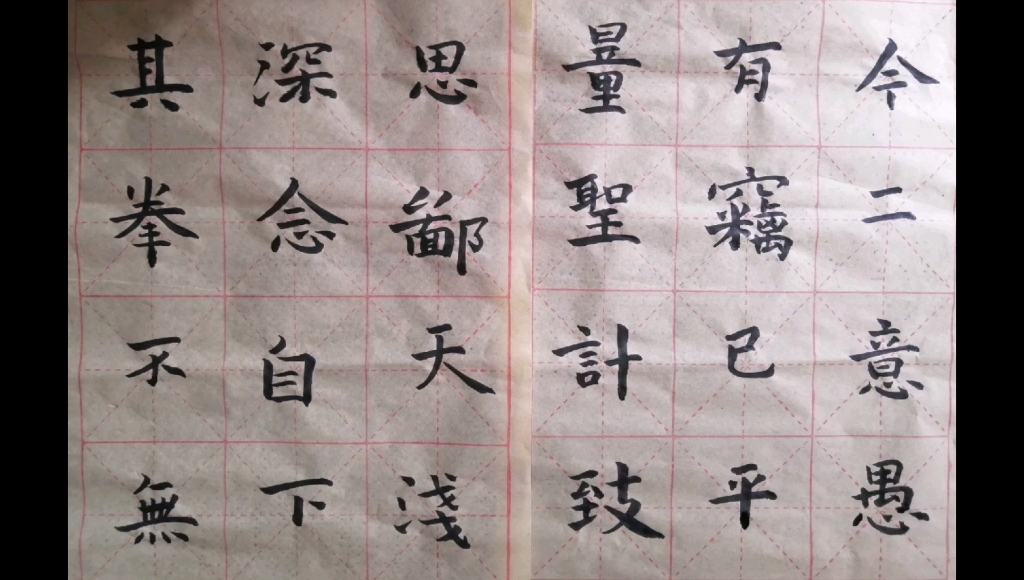 今二意愚
有竊已平
量聖計致
思鄙天淺
深念自下
其拳不無